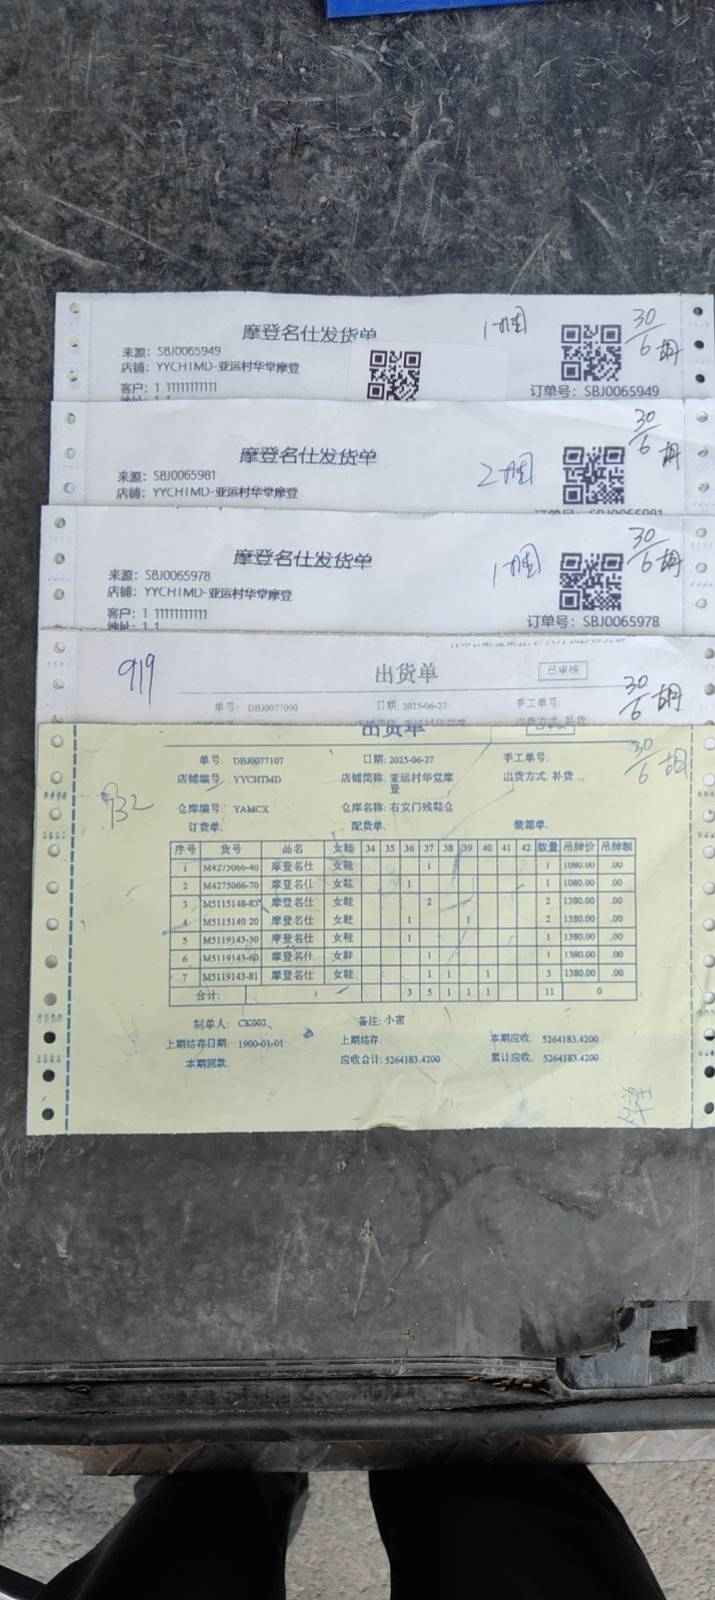 摩登名仕发货单
1捆
30/6 胡
来源: SBJ0065949
店铺: YYCHTMD-亚运村华堂摩登
客户: 1 11111111111
订单号: SBJ0065949
摩登名仕发货单
2捆
30/6 胡
来源: SBJ0065981
店铺: YYCHTMD-亚运村华堂摩登
订单号: SBJ0065981
摩登名仕发货单
1捆
30/6 胡
来源: SBJ0065978
店铺: YYCHTMD-亚运村华堂摩登
客户: 1 11111111111
地址: 1 1
订单号: SBJ0065978
919
出货单
已审核
30/6 胡
单号: DBJ0077090 日期: 2025-06-27 手工单号:
出货单
单号: DBJ0077107 日期: 2025-06-27 手工单号:
30/6 胡
店铺编号: YYCHTMD 店铺简称: 亚运村华堂摩登 出货方式: 补货
932
仓库编号: YAMCX 仓库名称: 右安门残鞋仓
订货单: 配货单: 装箱单:
序号 货号 品名 女鞋 34 35 36 37 38 39 40 41 42 数量 吊牌价 吊牌额
1 M4275066-40 摩登名仕 女鞋 1 1 1080.00 .00
2 M4275066-70 摩登名仕 女鞋 1 1 1080.00 .00
3 M5115148-83 摩登名仕 女鞋 2 2 1380.00 .00
4 M5115149-20 摩登名仕 女鞋 1 1 2 1380.00 .00
5 M5119143-30 摩登名仕 女鞋 1 1 1380.00 .00
6 M5119143-60 摩登名仕 女鞋 1 1 1380.00 .00
7 M5119143-81 摩登名仕 女鞋 1 1 1 3 1380.00 .00
合计: 3 5 1 1 1 11 0
制单人: CK002、 备注: 小富
上期结存日期: 1900-01-01 上期结存: 本期应收: 5264183.4200
本期回款: 应收合计: 5264183.4200 累计应收: 5264183.4200